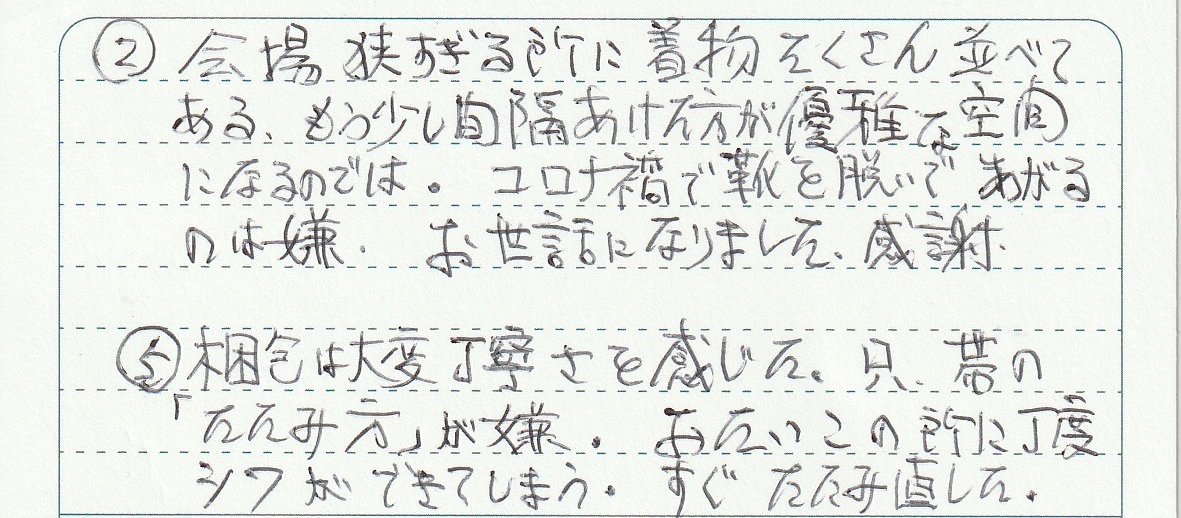 ② 会場狭すぎる所に着物たくさん並べて
ある、もう少し間隔あけた方が優雅な空間
になるのでは。コロナ禍で靴を脱いであがる
のは嫌. お世話になりました、感謝.
⑤梱包は大変丁寧さを感じた。只、帯の
「たたみ方」が嫌。おたいこの所に丁度
シワができてしまう。すぐたたみ直した。